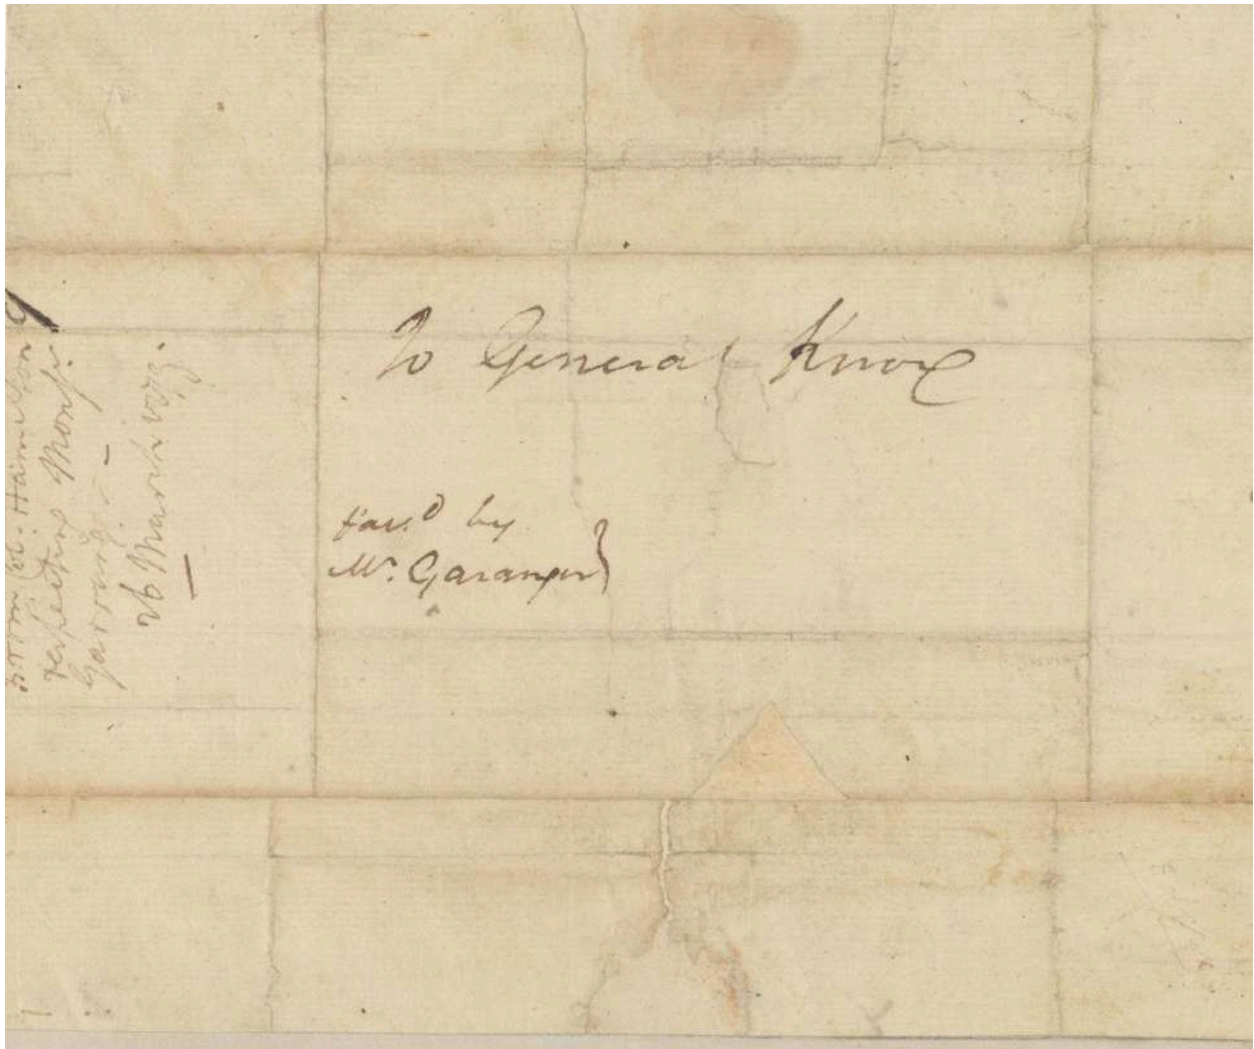 To General Knox
favd by
Mr. Garanger}
from Col. Hamilton
respecting Monsr.
26 March